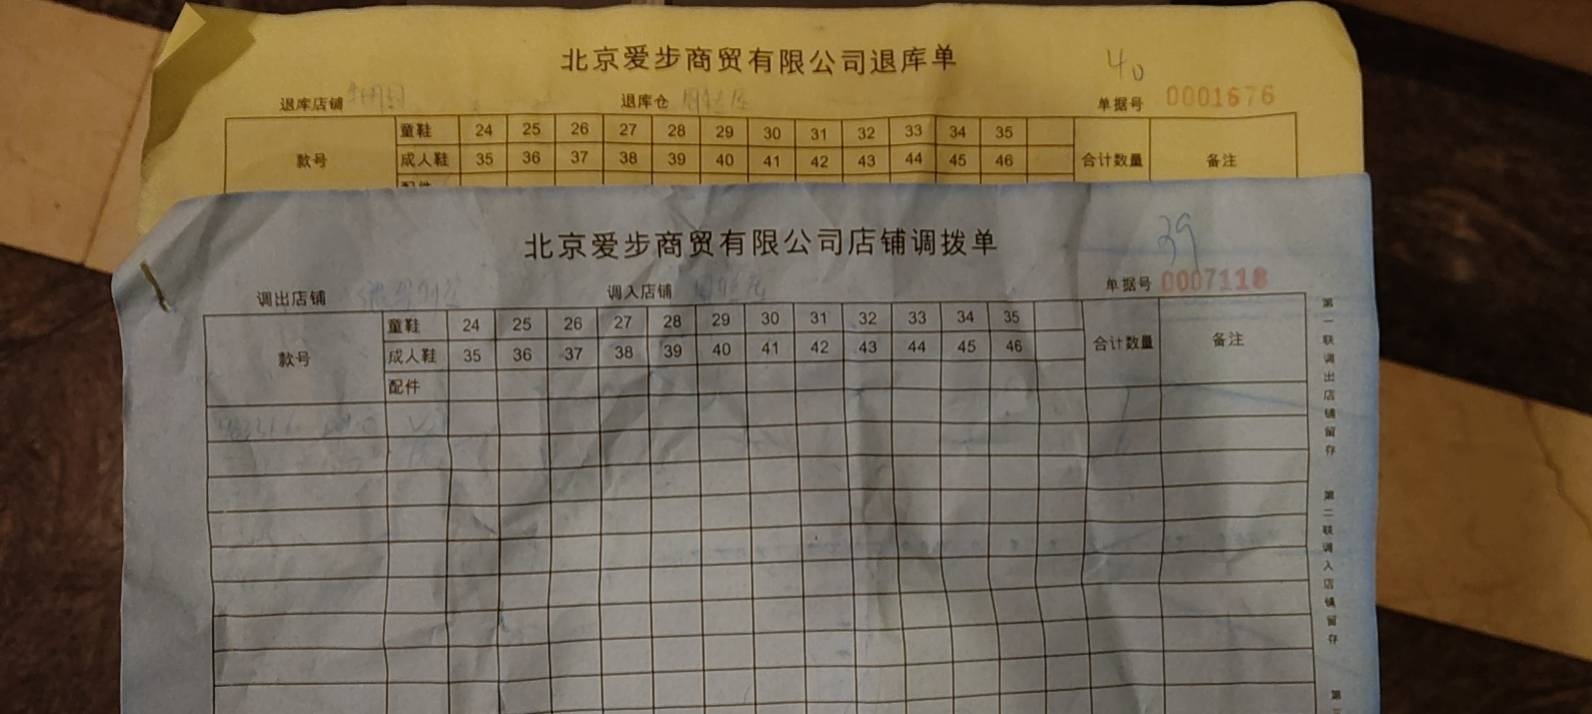 北京爱步商贸有限公司退库单
40
退库店铺 退库仓 周转库 单据号 0001676
款号 童鞋 24 25 26 27 28 29 30 31 32 33 34 35 合计数量 备注
成人鞋 35 36 37 38 39 40 41 42 43 44 45 46
配件
北京爱步商贸有限公司店铺调拨单
39
调出店铺 调入店铺 单据号 0007118
款号 童鞋 24 25 26 27 28 29 30 31 32 33 34 35 合计数量 备注
成人鞋 35 36 37 38 39 40 41 42 43 44 45 46
配件
第一联调出店铺留存
第二联调入店铺留存
第三